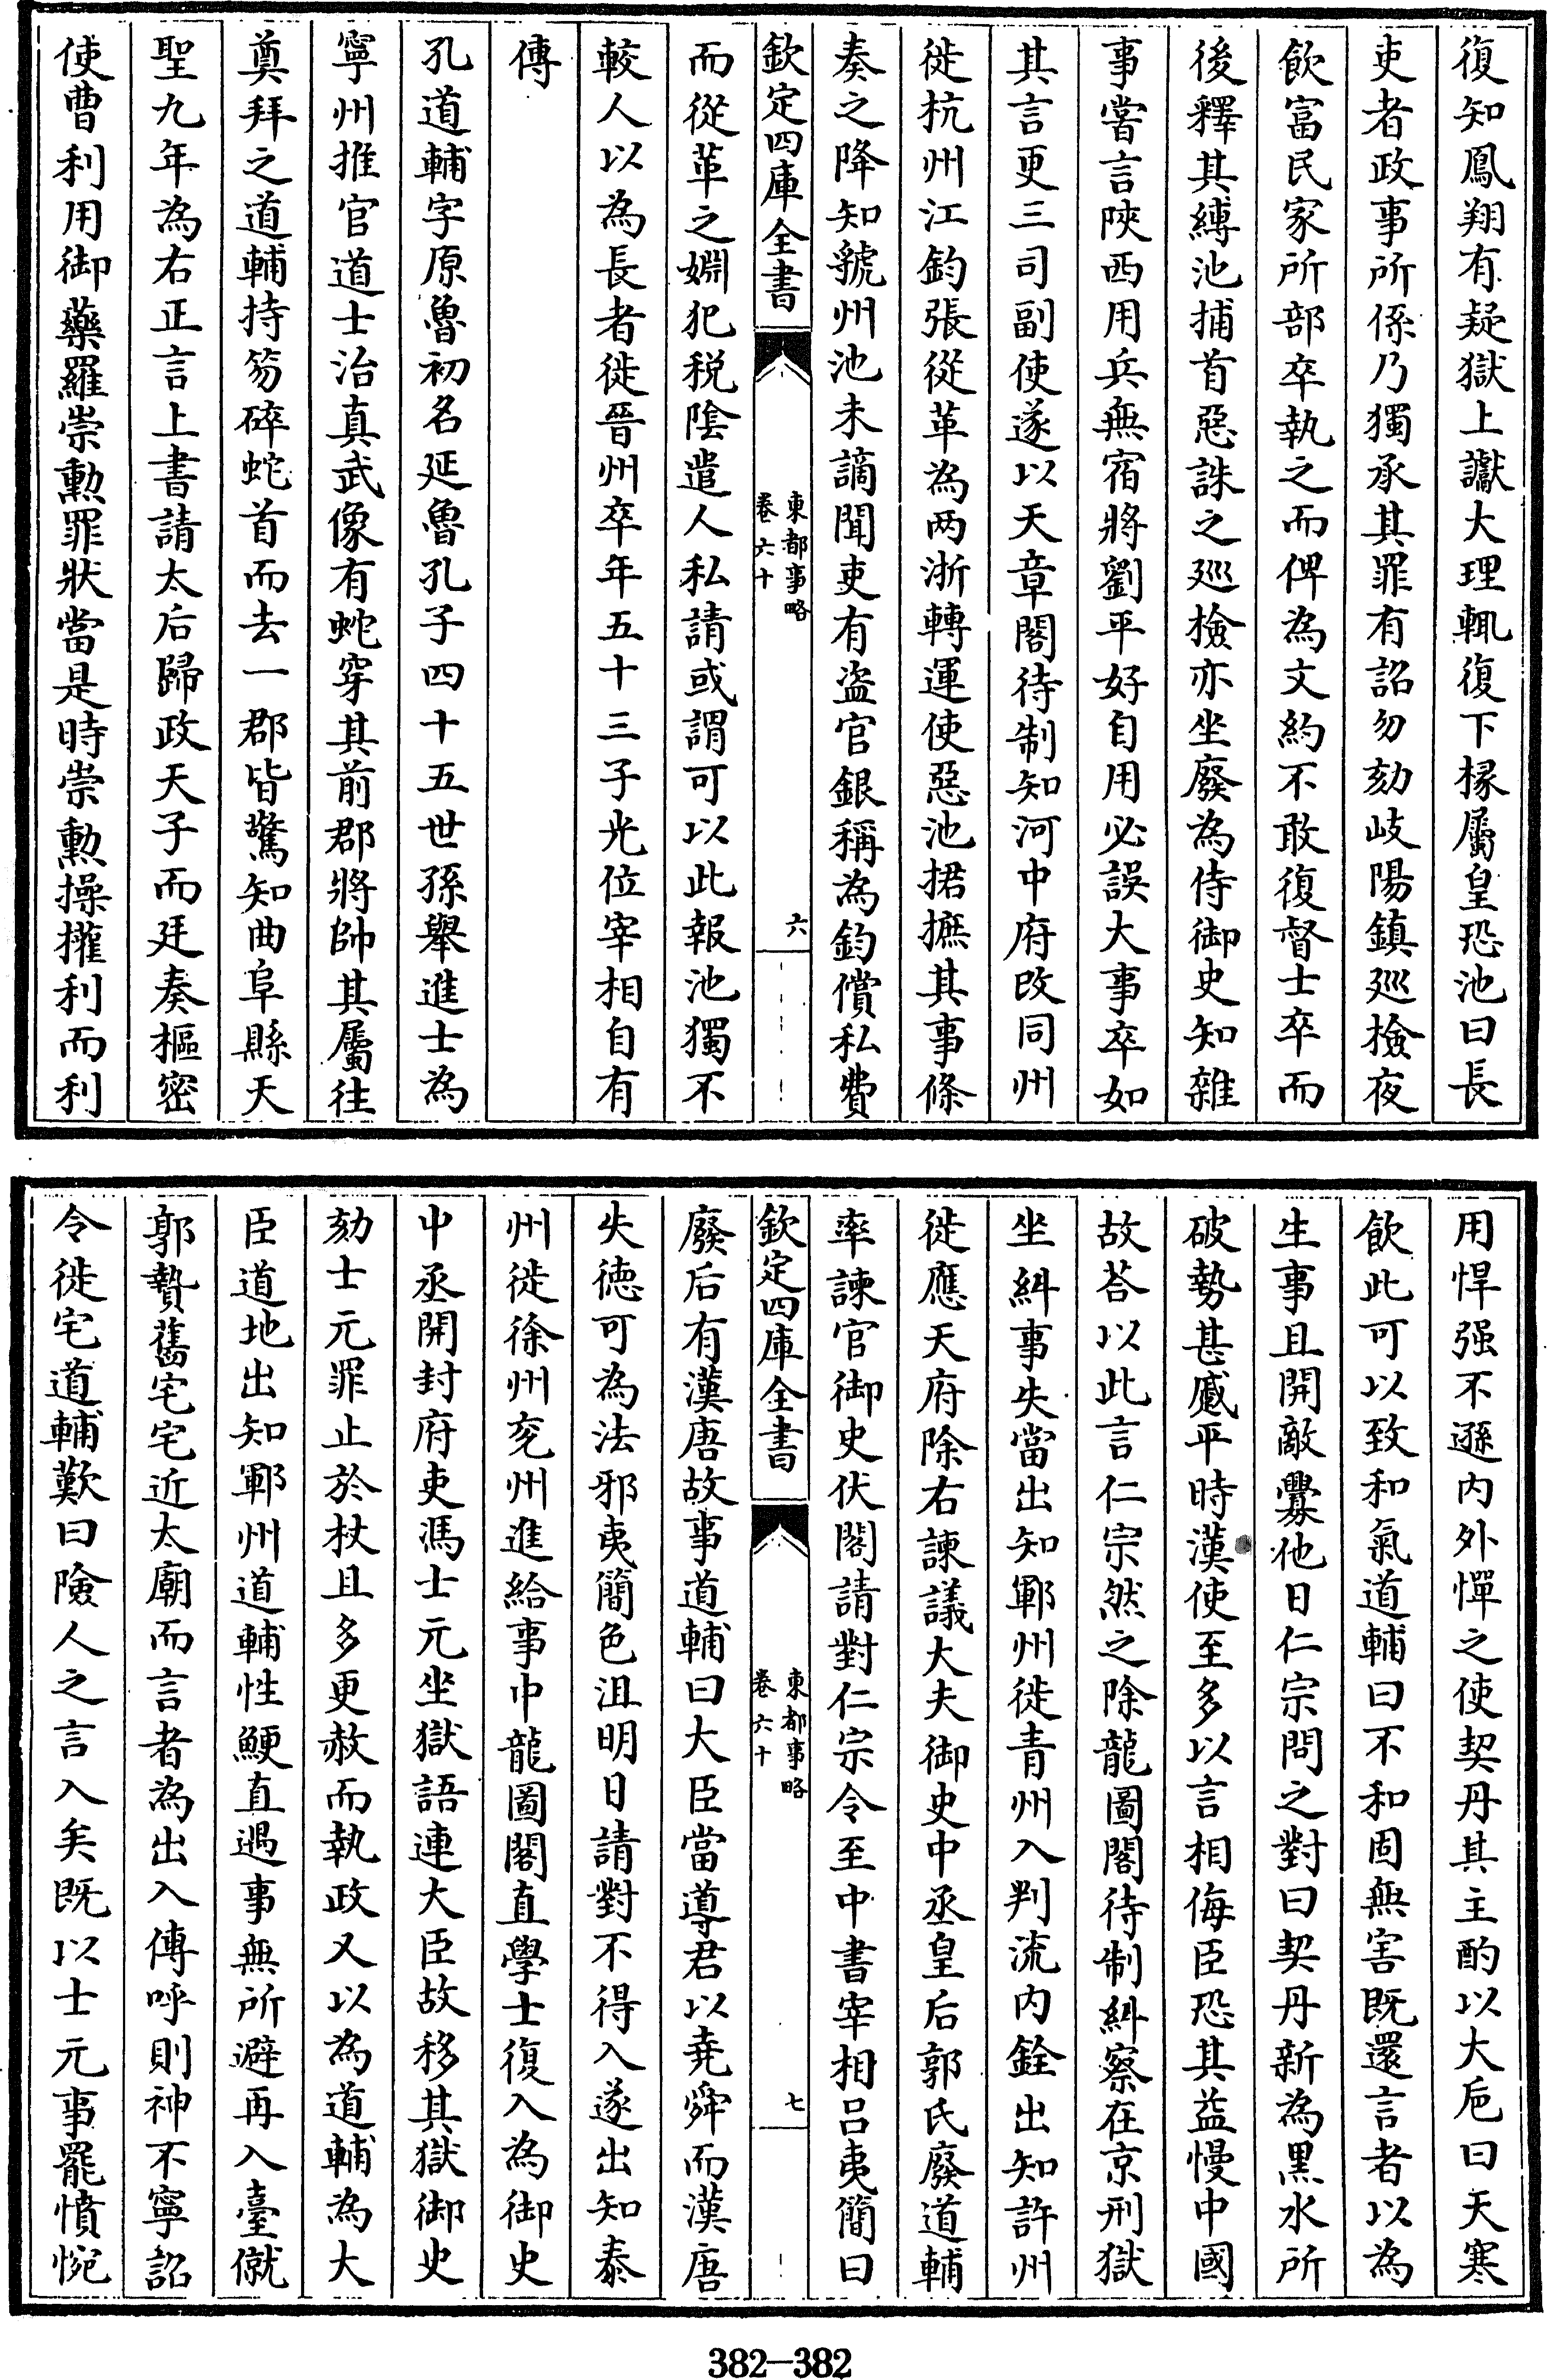 復知鳳翔有疑獄上讞大理輒復下掾屬皇恐池曰長
吏者政事所係乃獨承其罪有詔勿劾岐陽鎮巡檢夜
飲富民家所部卒執之而俾為文約不敢復督士卒而
後釋其縛池捕首惡誅之巡檢亦坐廢為侍御史知雜
事嘗言陜西用兵無宿將劉平好自用必誤大事卒如
其言更三司副使遂以天章閣待制知河中府改同州
徙杭州江鈞張從革為兩浙轉運使惡池捃摭其事條
奏之降知虢州池未謫聞吏有盗官銀稱為鈞償私費
欽定四庫全書
東都事略
卷六十
六
而從革之婣犯税陰遣人私請或謂可以此報池獨不
較人以為長者徙晉州卒年五十三子光位宰相自有
傳
孔道輔字原魯初名延魯孔子四十五世孫舉進士為
寧州推官道士治真武像有蛇穿其前郡將帥其屬往
奠拜之道輔持笏碎蛇首而去一郡皆驚知曲阜縣天
聖九年為右正言上書請太后歸政天子而廷奏樞密
使曹利用御藥羅崇勲罪狀當是時崇勲操權利而利
用悍强不遜内外憚之使契丹其主酌以大巵曰天寒
飲此可以致和氣道輔曰不和固無害既還言者以為
生事且開敵釁他日仁宗問之對曰契丹新為黒水所
破勢甚蹙平時漢使至多以言相侮臣恐其益慢中國
故荅以此言仁宗然之除龍圖閣待制糾察在京刑獄
坐糾事失當出知鄆州徙青州入判流内銓出知許州
徙應天府除右諫議大夫御史中丞皇后郭氏廢道輔
率諫官御史伏閣請對仁宗令至中書宰相吕夷簡曰
欽定四庫全書
東都事略
卷六十
七
廢后有漢唐故事道輔曰大臣當導君以堯舜而漢唐
失徳可為法邪夷簡色沮明日請對不得入遂出知泰
州徙徐州兖州進給事中龍圖閣直學士復入為御史
中丞開封府吏馮士元坐獄語連大臣故移其獄御史
劾士元罪止於杖且多更赦而執政又以為道輔為大
臣道地出知鄆州道輔性鯁直遇事無所避再入臺僦
郭贄舊宅宅近太廟而言者為出入傳呼則神不寧詔
令徙宅道輔歎曰險人之言入矣既以士元事罷憤惋
382—382